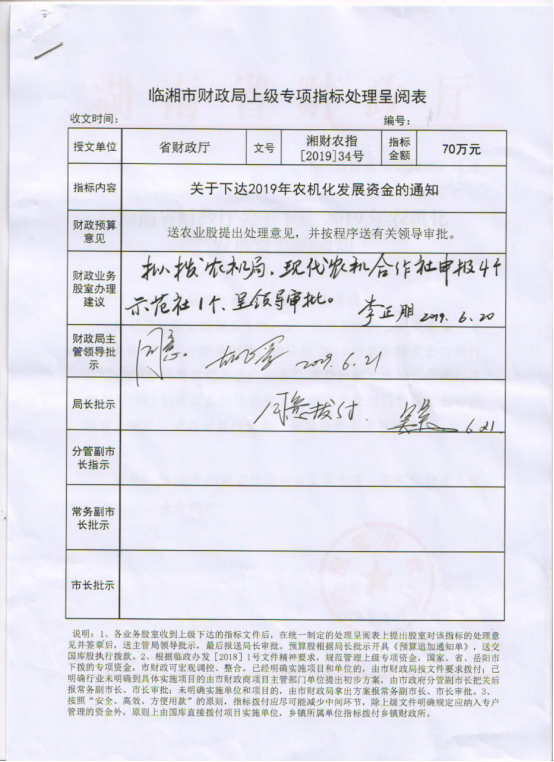 临湘市财政局上级专项指标处理呈阅表
收文时间： 编号：
授文单位 省财政厅 文号 湘财农指[2019]34号 指标金额 70万元
指标内容 关于下达2019年农机化发展资金的通知
财政预算意见 送农业股提出处理意见，并按程序送有关领导审批。
财政业务股室办理建议 拟拨农机局，现代农机合作社申报4个
示范社1个，呈领导审批。 李正朋 2019.6.20
财政局主管领导批示 同意。 2019.6.21
局长批示 同意拨付. 6.21
分管副市长指示
常务副市长批示
市长批示
说明：1、各业务股室收到上级下达的指标文件后，在统一制定的处理呈阅表上提出股室对该指标的处理意
见并签章后，送主管局领导批示，最后报送局长审批。预算股根据局长批示开具《预算追加通知单》，送交
国库股执行拨款。2、根据临政办发［2018］1号文件精神要求，规范管理上级专项资金，国家、省、岳阳市
下拨的专项资金，市财政可宏观调控、整合。已经明确实施项目和单位的，由市财政局按文件要求拨付；已
明确行业未明确到具体实施项目的由市财政商项目主管部门单位提出初步方案，由市政府分管副市长把关后
报常务副市长、市长审批；未明确实施单位和项目的，由市财政局拿出方案报常务副市长、市长审批。3、
按照“安全、高效、方便用款”的原则，指标拨付应尽可能减少中间环节，除上级文件明确规定应纳入专户
管理的资金外，原则上由国库直接拨付项目实施单位，乡镇所属单位指标拨付乡镇财政所。